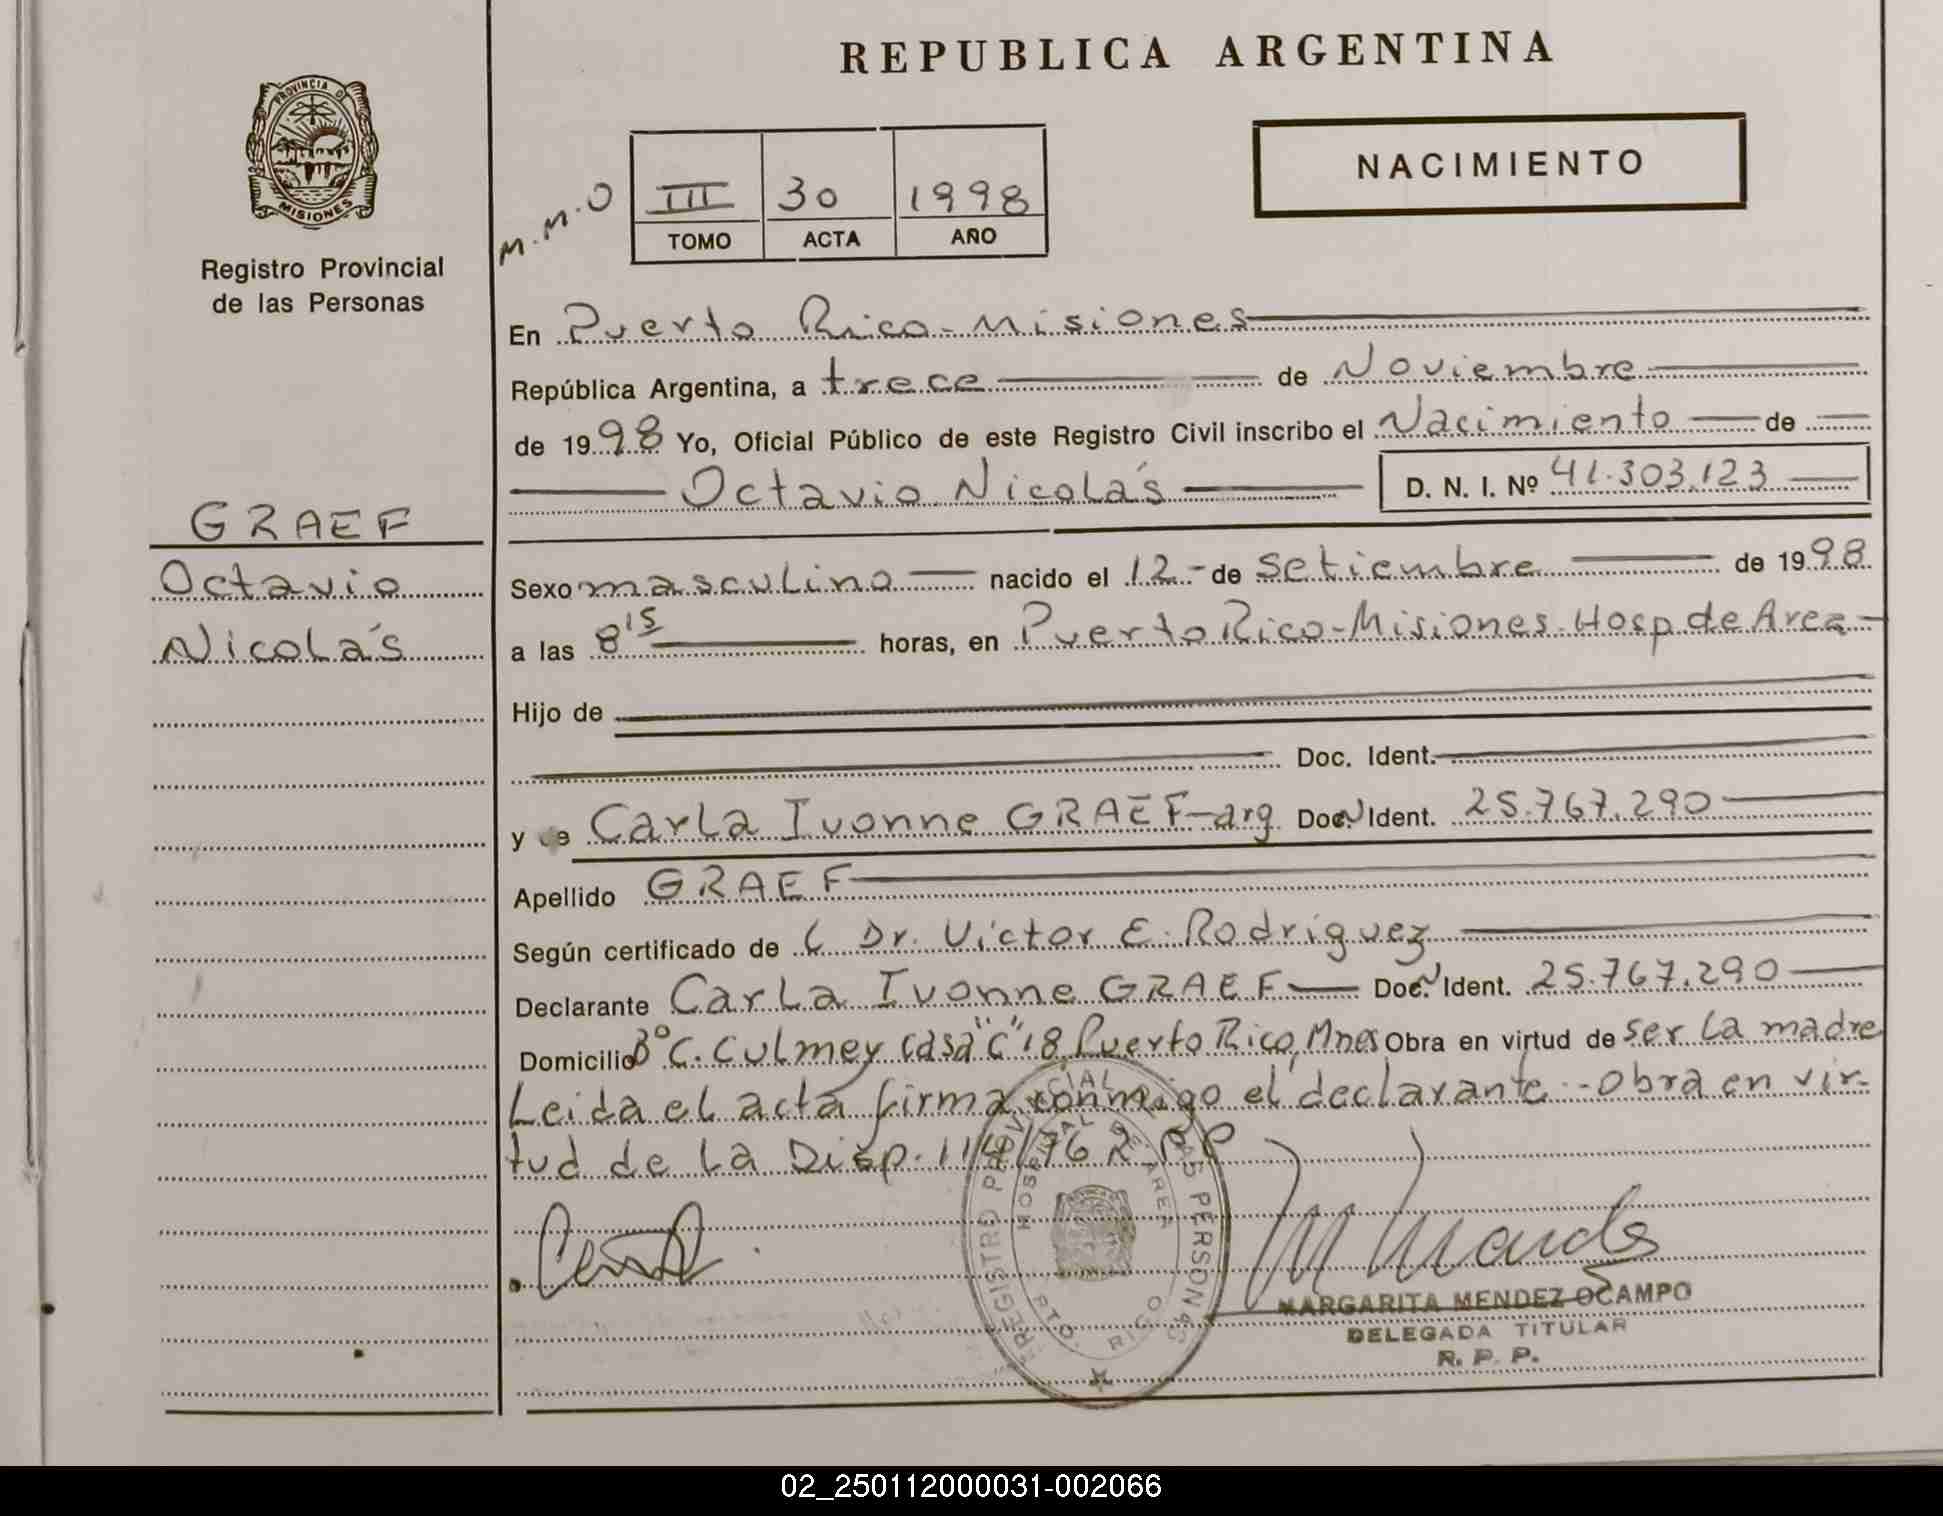 REPUBLICA ARGENTINA
PROVINCIA DE
MISIONES
Registro Provincial
de las Personas
NACIMIENTO
M.M.O
III 30 1998
TOMO ACTA AÑO
En Puerto Rico - Misiones
República Argentina, a trece de Noviembre
de 1998 Yo, Oficial Público de este Registro Civil inscribo el Nacimiento de
Octavio Nicolás D. N. I. Nº 41.303.123
GRAEF
Octavio
Nicolás
Sexo masculino nacido el 12 - de Setiembre de 1998
a las 8 15 horas, en Puerto Rico - Misiones - Hosp de Area -
Hijo de
Doc. Ident.
y de Carla Ivonne GRAEF - arg Doc. N Ident. 25.767.290
Apellido GRAEF
Según certificado de Dr. Victor E. Rodriguez
Declarante Carla Ivonne GRAEF Doc. N Ident. 25.767.290
Domicilio Bº C. Culmey casa "C" 18 Puerto Rico, Mnes Obra en virtud de ser la madre
Leida el acta firma conmigo el declarante - Obra en vir-
tud de la Disp. 114/76 R P P
REGISTRO PROVINCIAL DE LAS PERSONAS
HOSPITAL DE AREA
PTO. RICO
MARGARITA MENDEZ OCAMPO
DELEGADA TITULAR
R. P. P.
02_250112000031-002066